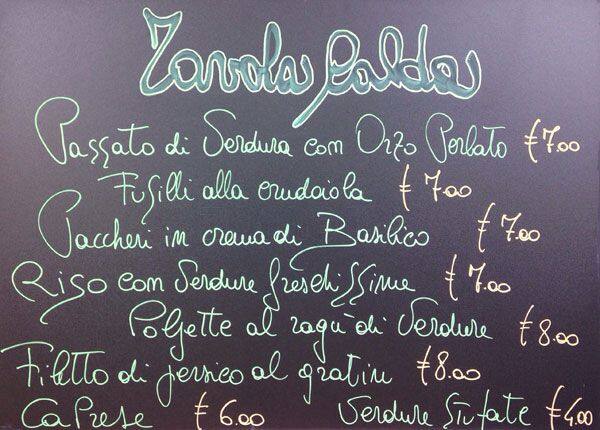 Tavola Calda
Passato di Verdura con Orzo Perlato €7.00
Fusilli alla crudaiola €7.00
Paccheri in crema di Basilico €7.00
Riso con Verdure freschissime €7.00
Polpette al ragù di Verdure €8.00
Filetto di persico al gratin €8.00
CaPrese €6.00 Verdure Stufate €4.00